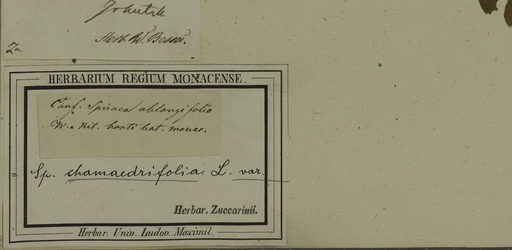 Irkutsk
Herb. W. Besser.
HERBARIUM REGIUM MONACENSE.
Conf. Spiraea oblongifolia
W. & Kit. horti bot. monac.
Sp. chamaedrifolia L. var.
Herbar. Zuccarinii.
Herbar. Univ. Ludov. Maximil.